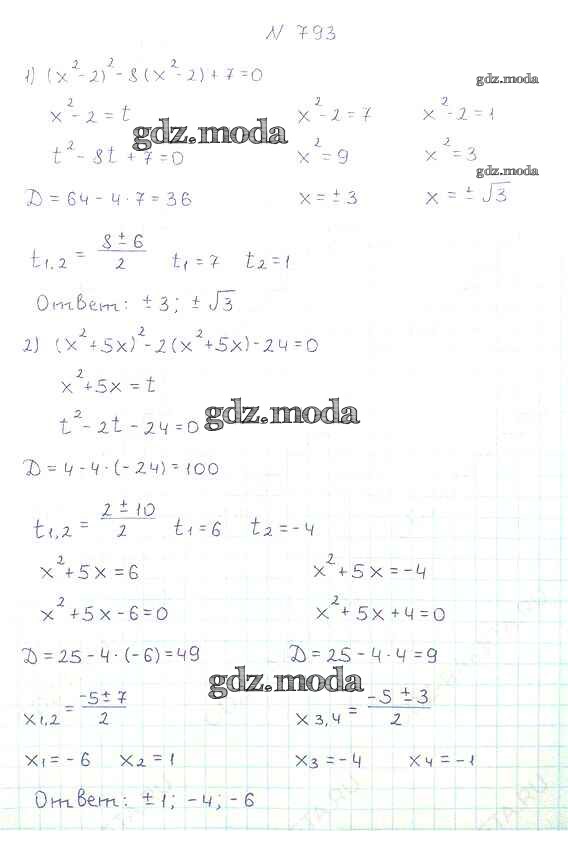 N 793
1) (x²-2)²-8(x²-2)+7=0
gdz.moda
x²-2=t x²-2=7 x²-2=1
gdz.moda
t²-8t+7=0 x²=9 x²=3
gdz.moda
D=64-4·7=36 x=±3 x=±√3
t₁,₂=(8±6)/2 t₁=7 t₂=1
Ответ: ±3; ±√3
2) (x²+5x)²-2(x²+5x)-24=0
x²+5x=t
gdz.moda
t²-2t-24=0
D=4-4·(-24)=100
t₁,₂=(2±10)/2 t₁=6 t₂=-4
x²+5x=6 x²+5x=-4
x²+5x-6=0 x²+5x+4=0
D=25-4·(-6)=49 D=25-4·4=9
gdz.moda
x₁,₂=(-5±7)/2 x₃,₄=(-5±3)/2
x₁=-6 x₂=1 x₃=-4 x₄=-1
Ответ: ±1; -4; -6